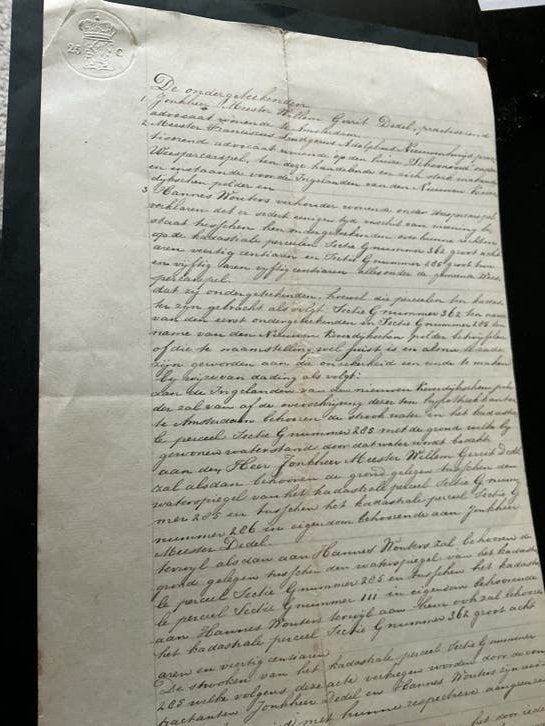 25 C
De ondergeteekenden
1 Jonkheer Meester Willem Gerrit Dedel, practiserend
advocaat wonende te Amsterdam
2 Meester Franciscus Ludgerus Adolphus Nieuwenhuijs prac
tiserend advocaat wonende op den huize
Weespercarspel, ten deze handelende en zich sterk makende
en instaande voor de Ingelanden van den Nieuwen
dijkschen polder en
3 Hannes Wouters veehouder wonende onder Weespercarspel
verklaren dat er sedert eenigen tijd verschil van meening be
staat tusschen hen ondergeteekenden over hunne rechten
op de kadastrale perceelen Sectie G nummer 362 groot acht
aren veertig centiaren en Sectie G nummer 285 groot een
en vijftig aren vijftig centiaren alles onder de gemeente Wees
percarspel.
dat zij ondergeteekenden, hoewel die perceelen ten kadas
ter zijn gebracht als volgt Sectie G nummer 362 ten name
van den eerst ondergeteekenden en Sectie G nummer 285 ten
name van den Nieuwen polder betwijfelen
of die te naamstelling wel juist is en alsnu te rade
zijn geworden aan die onzekerheid een einde te maken
bij wijze van dading als volgt:
Aan de Ingelanden van den nieuwen pol
der zal van af de overschrijving dezer ten hypotheekkantore
te Amsterdam behooren de strook water in het kadastra
le perceel Sectie G nummer 285 met de grond welke bij
gewonen waterstand door dat water wordt bedekt
aan den Heer Jonkheer Meester Willem Gerrit Dedel
zal alsdan behooren de grond gelegen tusschen den
waterspiegel van het kadastrale perceel Sectie G num
mer 285 en tusschen het kadastrale perceel Sectie G
nummer 286 in eigendom behoorende aan Jonkheer
Meester Dedel.
terwijl alsdan aan Hannes Wouters zal behooren de
grond gelegen tusschen den waterspiegel van het kadastra
le perceel Sectie G nummer 285 en tusschen het kadastra
le perceel Sectie G nummer 111 in eigendom behoorende
aan Hannes Wouters terwijl aan hem ook zal behooren
het kadastrale perceel Sectie G nummer 362 groot acht
aren en veertig centiaren
De strooken van het kadastrale perceel Sectie G nummer
285 welke volgens deze acte verkregen worden door de con
tractanten Jonkheer Dedel en Hannes Wouters zijn
met hunne respectieve aangrenzen